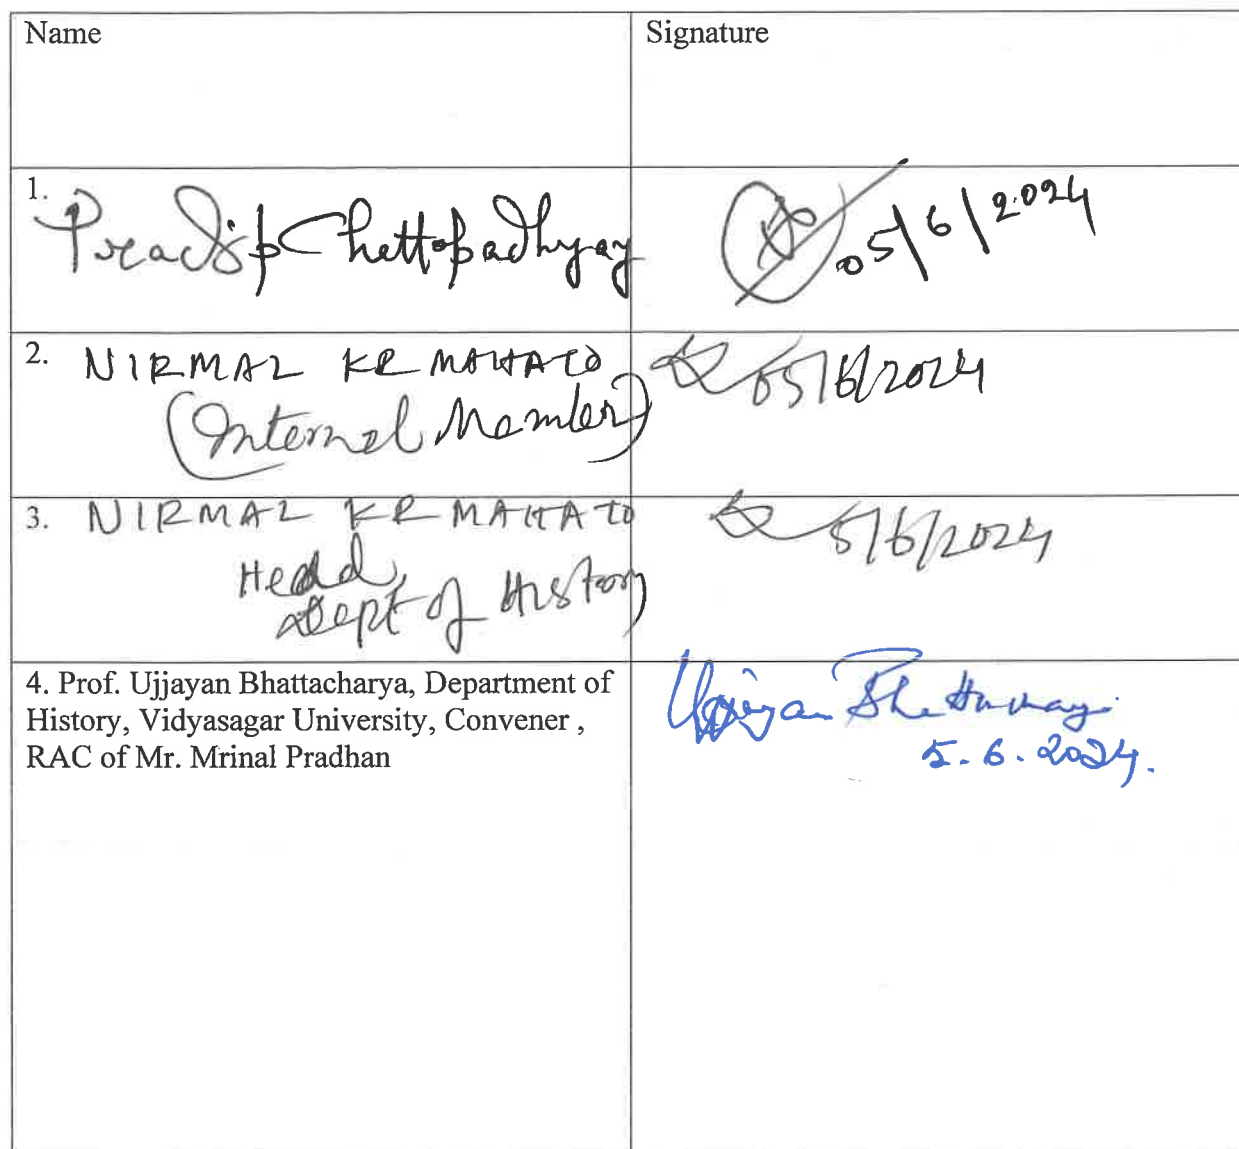 Name
Signature
1. Pradip Chattopadhyay
05/6/2024
2. NIRMAL KR MAHATO
(Internal Member)
05/6/2024
3. NIRMAL KR MAHATO
Head,
Dept of History
5/6/2024
4. Prof. Ujjayan Bhattacharya, Department of
History, Vidyasagar University, Convener ,
RAC of Mr. Mrinal Pradhan
Ujjayan Bhattacharya
5.6.2024.